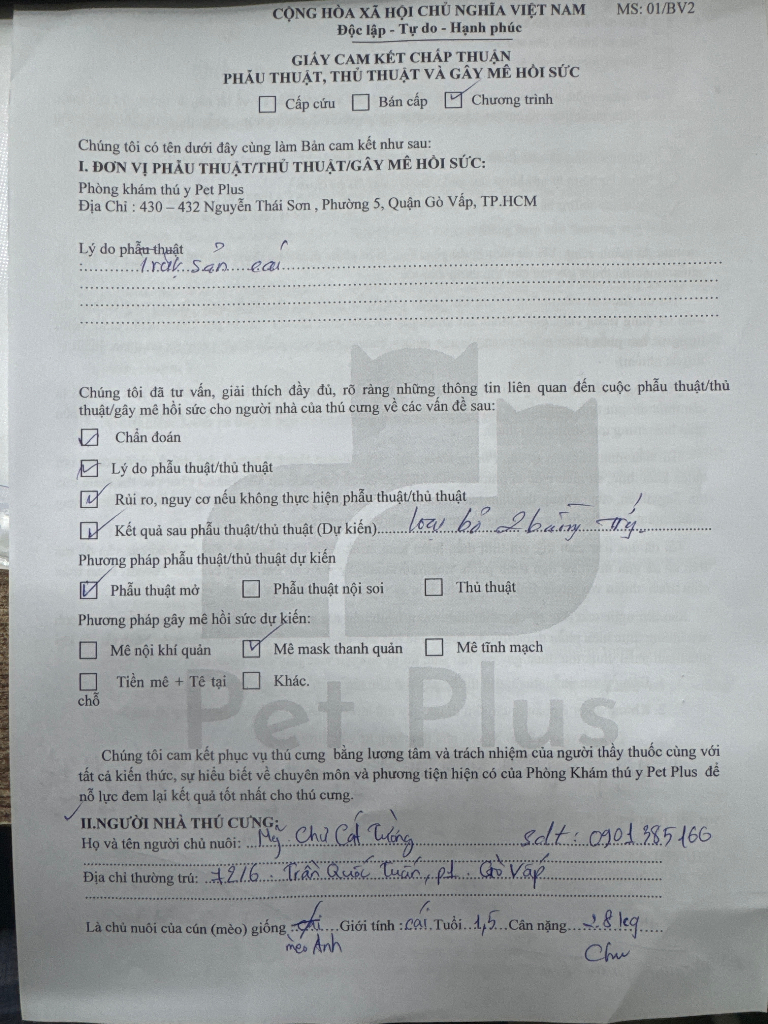 CỘNG HÒA XÃ HỘI CHỦ NGHĨA VIỆT NAM MS: 01/BV2
Độc lập - Tự do - Hạnh phúc
GIẤY CAM KẾT CHẤP THUẬN
PHẪU THUẬT, THỦ THUẬT VÀ GÂY MÊ HỒI SỨC
Cấp cứu Bán cấp Chương trình
Chúng tôi có tên dưới đây cùng làm Bản cam kết như sau:
I. ĐƠN VỊ PHẪU THUẬT/THỦ THUẬT/GÂY MÊ HỒI SỨC:
Phòng khám thú y Pet Plus
Địa Chỉ : 430 – 432 Nguyễn Thái Sơn , Phường 5, Quận Gò Vấp, TP.HCM
Lý do phẫu thuật
: triệt sản cái
Chúng tôi đã tư vấn, giải thích đầy đủ, rõ ràng những thông tin liên quan đến cuộc phẫu thuật/thủ
thuật/gây mê hồi sức cho người nhà của thú cưng về các vấn đề sau:
Chẩn đoán
Lý do phẫu thuật/thủ thuật
Rủi ro, nguy cơ nếu không thực hiện phẫu thuật/thủ thuật
Kết quả sau phẫu thuật/thủ thuật (Dự kiến) loại bỏ 2 buồng trứng
Phương pháp phẫu thuật/thủ thuật dự kiến
Phẫu thuật mở Phẫu thuật nội soi Thủ thuật
Phương pháp gây mê hồi sức dự kiến:
Mê nội khí quản Mê mask thanh quản Mê tĩnh mạch
Tiền mê + Tê tại Khác.
chỗ
Pet Plus
Chúng tôi cam kết phục vụ thú cưng bằng lương tâm và trách nhiệm của người thầy thuốc cùng với
tất cả kiến thức, sự hiểu biết về chuyên môn và phương tiện hiện có của Phòng Khám thú y Pet Plus để
nỗ lực đem lại kết quả tốt nhất cho thú cưng.
II.NGƯỜI NHÀ THÚ CƯNG:
Họ và tên người chủ nuôi: Mỹ Chu Cát Tường sdt: 0901385166
Địa chỉ thường trú: 72/6 Trần Quốc Tuấn, p1. Gò Vấp
Là chủ nuôi của cún (mèo) giống Giới tính : cái Tuổi 1,5 Cân nặng 2.8 kg
mèo Anh Chu